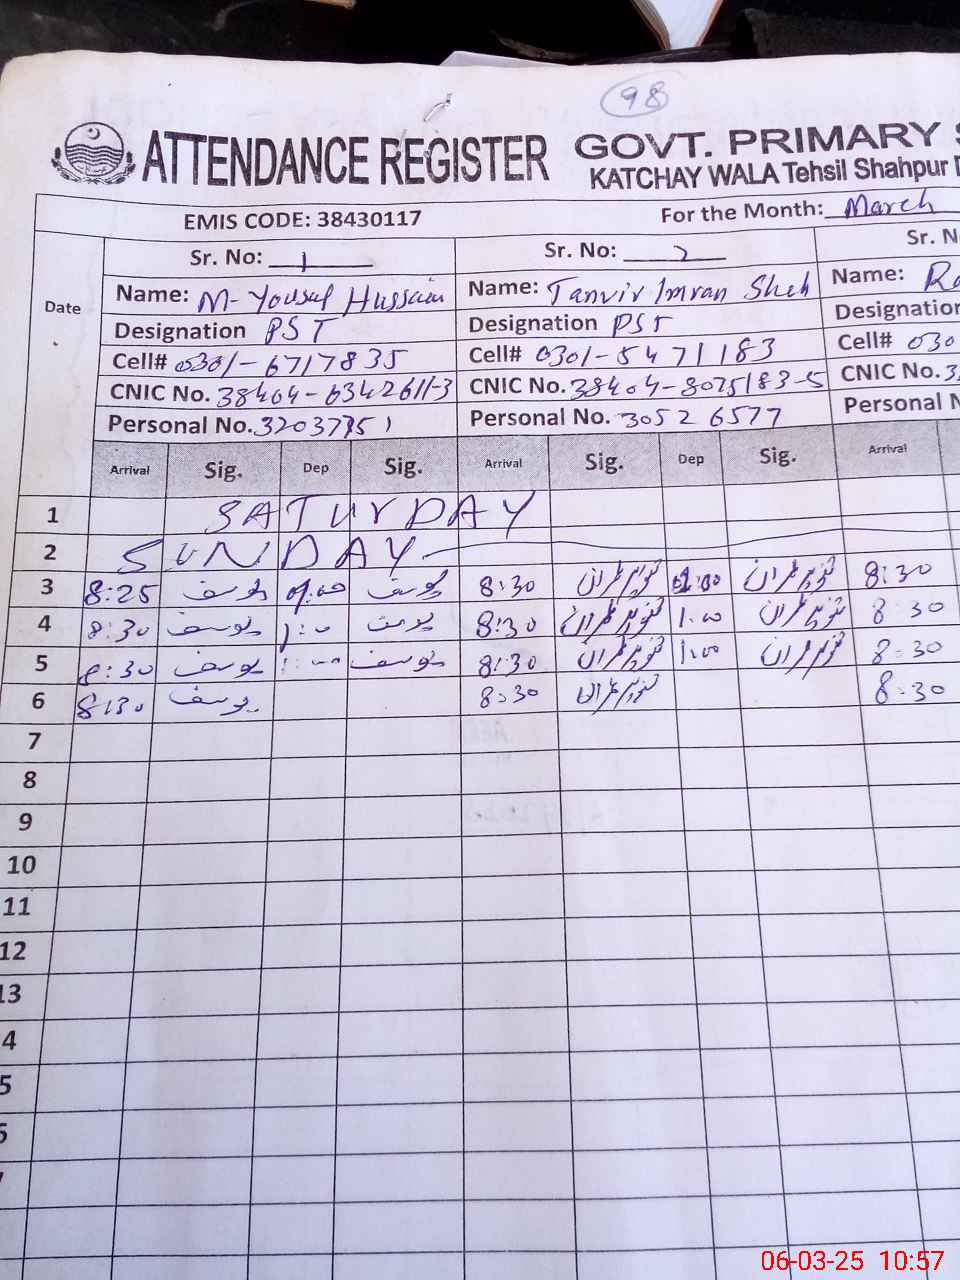 98
ATTENDANCE REGISTER GOVT. PRIMARY S
KATCHAY WALA Tehsil Shahpur D
EMIS CODE: 38430117 For the Month: March
Date Sr. No: 1 Sr. No: 2 Sr. N
Name: M-Yousuf Hussain Name: Tanvir Imran Name: Ra
Designation PST Designation PST Designation
Cell# 0301-6717835 Cell# 0301-5471183 Cell# 030
CNIC No. 38404-6342611-3 CNIC No. 38404-8075183-5 CNIC No. 3
Personal No. Personal No. 30526577 Personal N
Arrival Sig. Dep Sig. Arrival Sig. Dep Sig. Arrival
1 SATURDAY
2 SUNDAY
3 8:25 یوسف یوسف 8:30 تنویر عمران تنویر عمران 8:30
4 8:30 یوسف 1:0 یوسف 8:30 تنویر عمران 1:00 تنویر عمران 8:30
5 8:30 یوسف 1:00 یوسف 8:30 تنویر عمران 1:00 تنویر عمران 8:30
6 8:30 یوسف 8:30 تنویر عمران 8:30
7
8
9
10
11
12
13
4
5
6
7
06-03-25 10:57